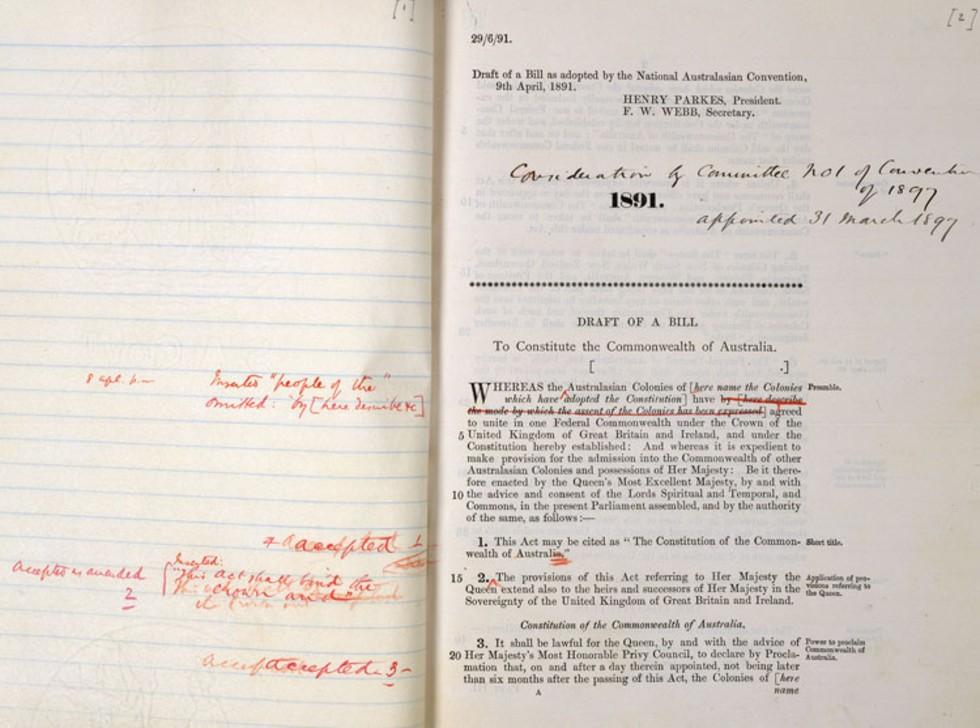 [1]
8 Apl.
Inserted "people of the"
omitted: by [here describe &c]
accepted 1
accepted as amended
2
Inserted:
"This Act shall bind the
Crown and"
accepted 3
[2]
29/6/91.
Draft of a Bill as adopted by the National Australasian Convention,
9th April, 1891.
HENRY PARKES, President.
F. W. WEBB, Secretary.
Consideration by Committee No 1 of Convention
of 1897
1891.
appointed 31 March 1897
DRAFT OF A BILL
To Constitute the Commonwealth of Australia.
[ .]
WHEREAS the Australasian Colonies of [here name the Colonies Preamble.
which have adopted the Constitution] have by [here describe
the mode by which the assent of the Colonies has been expressed] agreed
to unite in one Federal Commonwealth under the Crown of the
5 United Kingdom of Great Britain and Ireland, and under the
Constitution hereby established: And whereas it is expedient to
make provision for the admission into the Commonwealth of other
Australasian Colonies and possessions of Her Majesty: Be it there-
fore enacted by the Queen's Most Excellent Majesty, by and with
10 the advice and consent of the Lords Spiritual and Temporal, and
Commons, in the present Parliament assembled, and by the authority
of the same, as follows:—
1. This Act may be cited as "The Constitution of the Common- Short title.
wealth of Australia."
15 2. The provisions of this Act referring to Her Majesty the
Queen extend also to the heirs and successors of Her Majesty in the
Sovereignty of the United Kingdom of Great Britain and Ireland.
Application of pro-
visions referring to
the Queen.
Constitution of the Commonwealth of Australia.
3. It shall be lawful for the Queen, by and with the advice of
20 Her Majesty's Most Honorable Privy Council, to declare by Procla-
mation that, on and after a day therein appointed, not being later
than six months after the passing of this Act, the Colonies of [here
Power to proclaim
Commonwealth of
Australia.
A
name